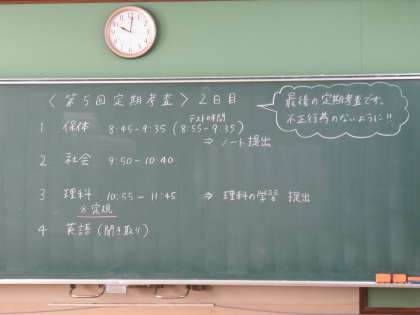 〈第5回定期考査〉2日目
最後の定期考査です。
不正行為のないように!!
テスト時間
1 保体 8:45-9:35 (8:55-9:35)
⇒ ノート提出
2 社会 9:50-10:40
3 理科 10:55-11:45 ⇒ 理科の学習 提出
定規
4 英語(聞き取り)